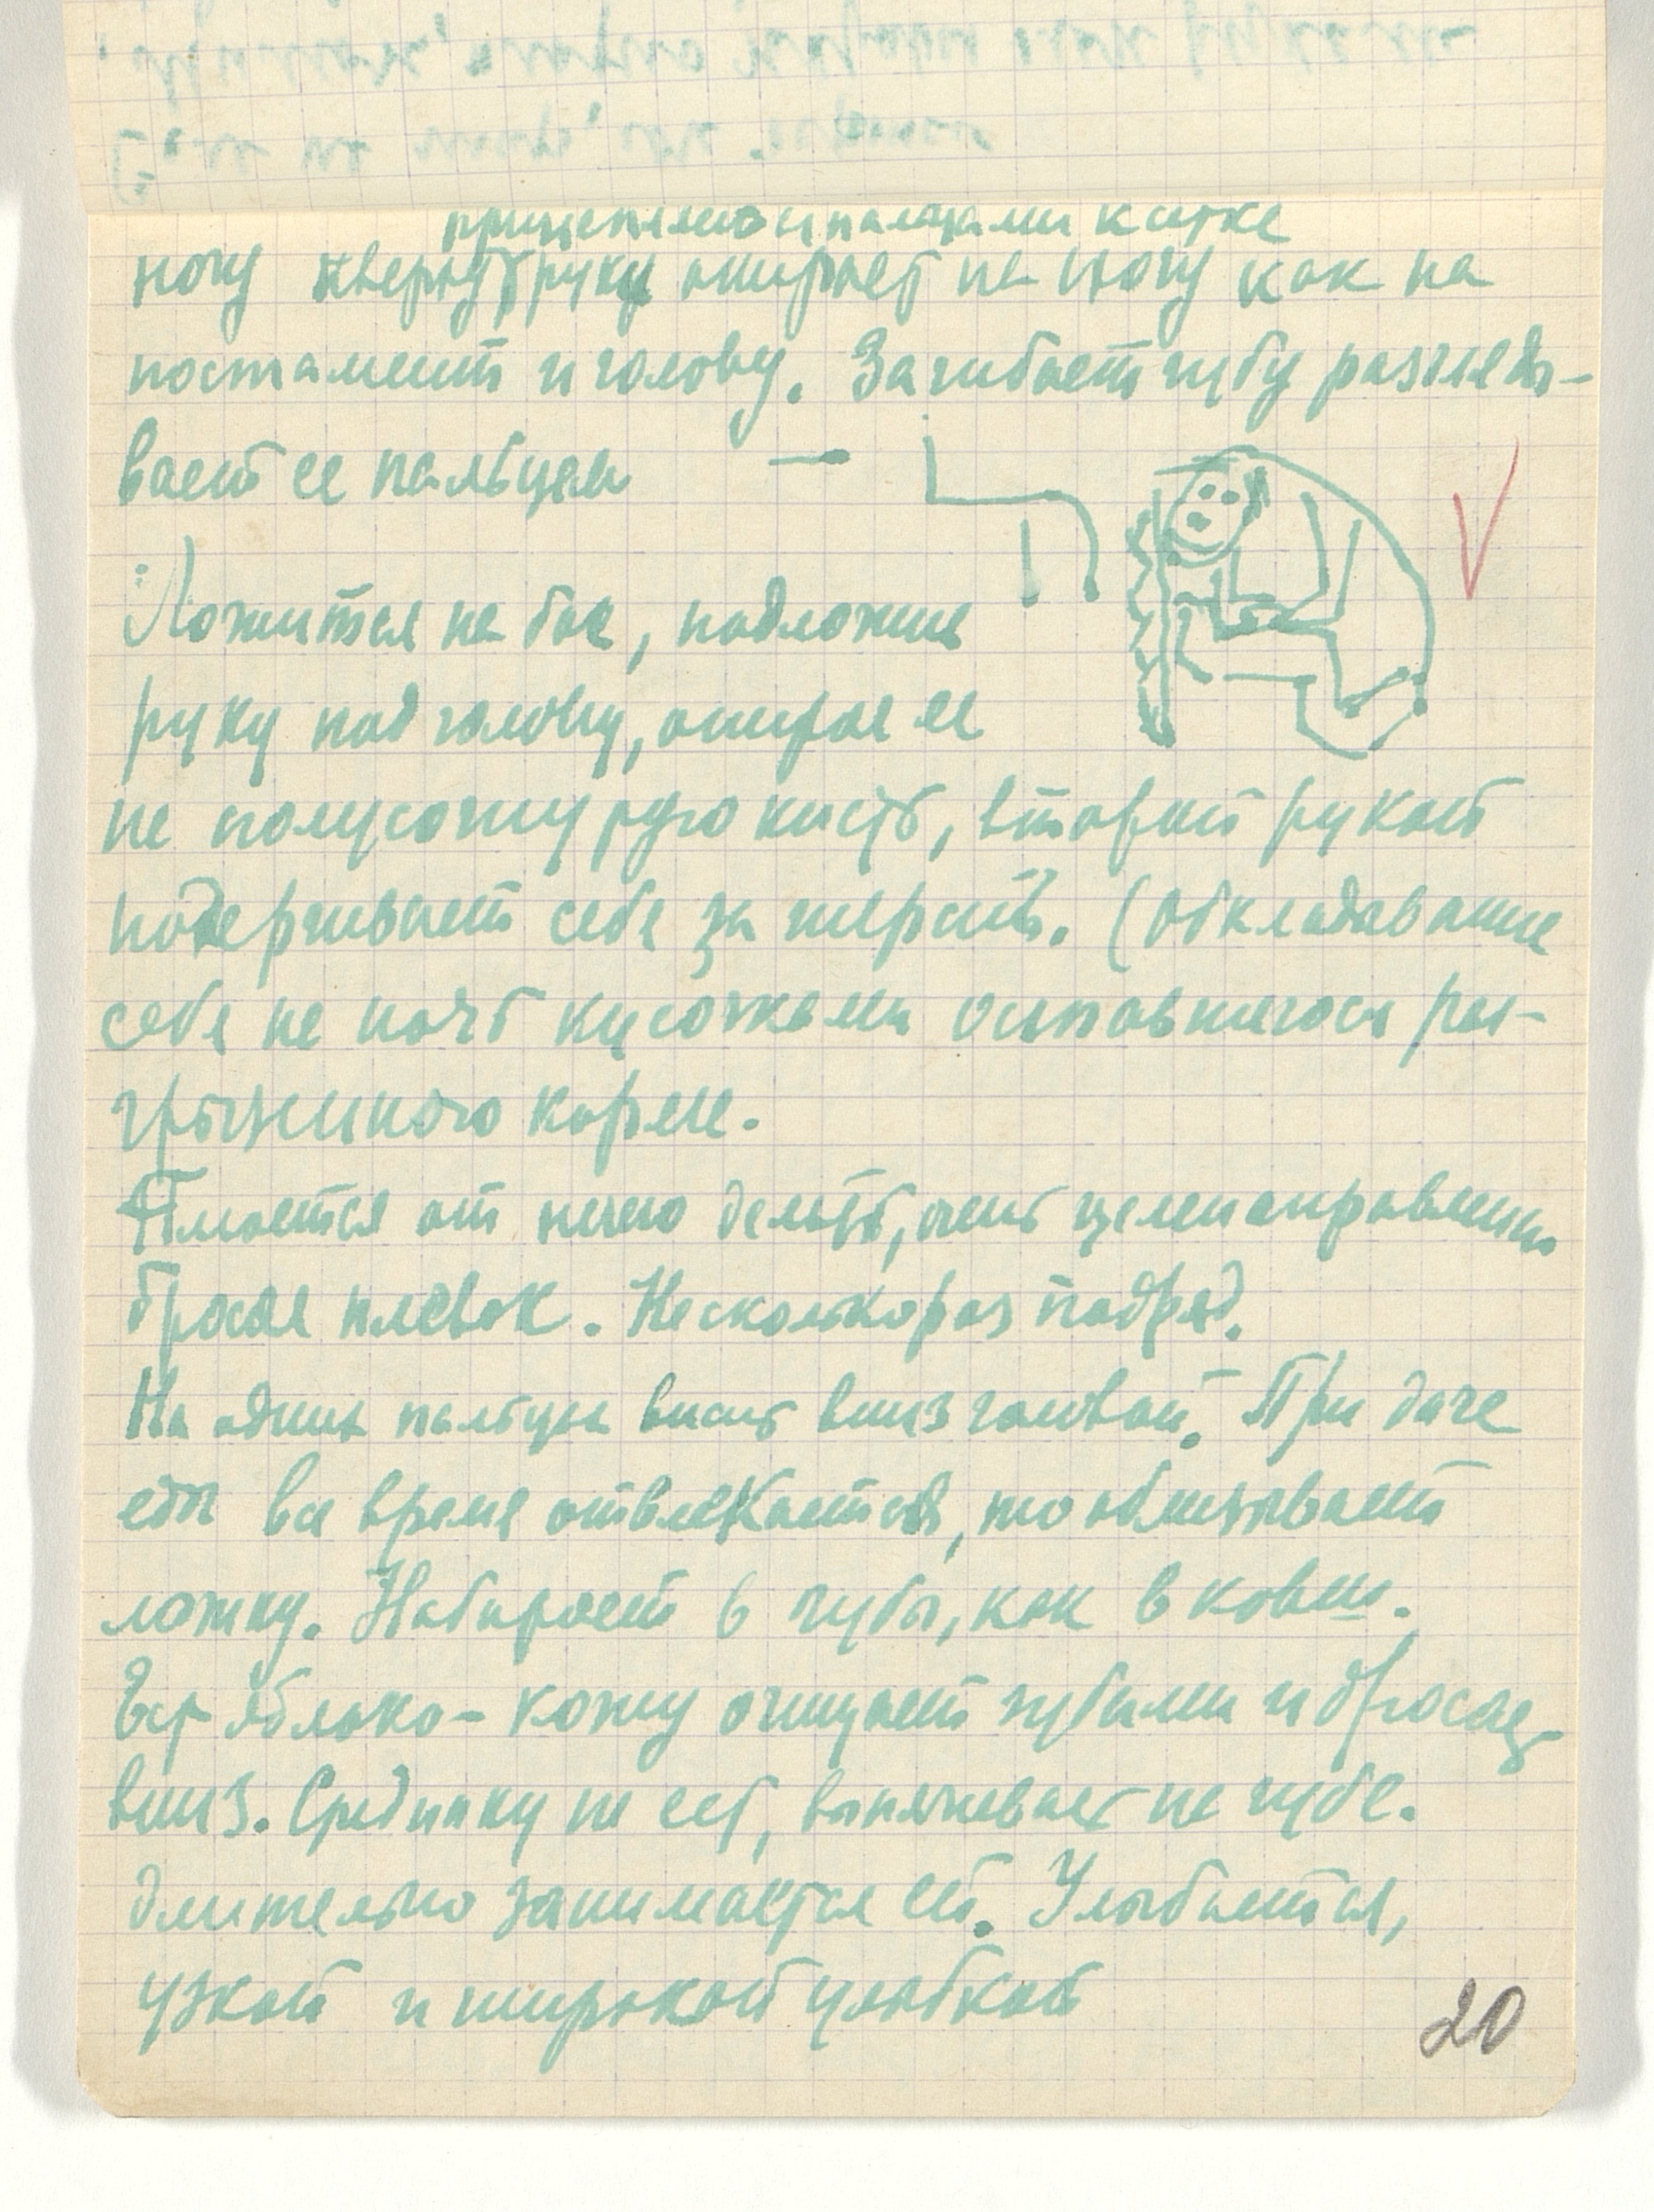 прицепляясь пальцами к сетке
ногу кверху руку опирает на ногу как на
постамент и голову. Загибает губу разгляды-
вает ее пальцем —
Ложится на бок, подложив
руку под голову, опирая ее
на полусогнутую кисть, второй рукой
подергивает себя за шерсть. (Обкладывание
себя на ночь кусочками оставшегося раз-
грызенного корма.
Плюется от нечего делать, очень целенаправленно
бросая плевок. Несколько раз подряд.
На одних пальцах висит вниз головой. При даче
еды все время отвлекается, то облизывает
ложку. Набирает в губы, как в ковш.
Ест яблоко – кожу очищает зубами и бросает
вниз. Срединку не ест, вынянчивает на губе.
длительно занимается ей. Улыбается,
узкой и широкой улыбкой
20